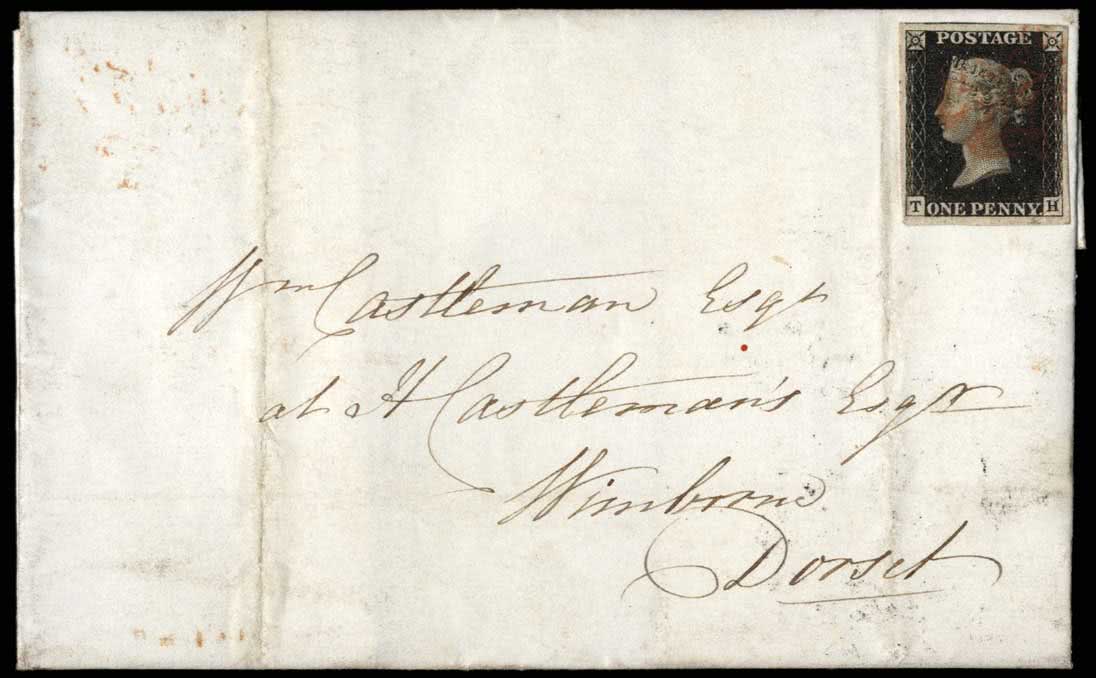 POSTAGE
T ONE PENNY. H
Wm Castleman Esqr
at H Castleman's Esqr
Wimborne
Dorset